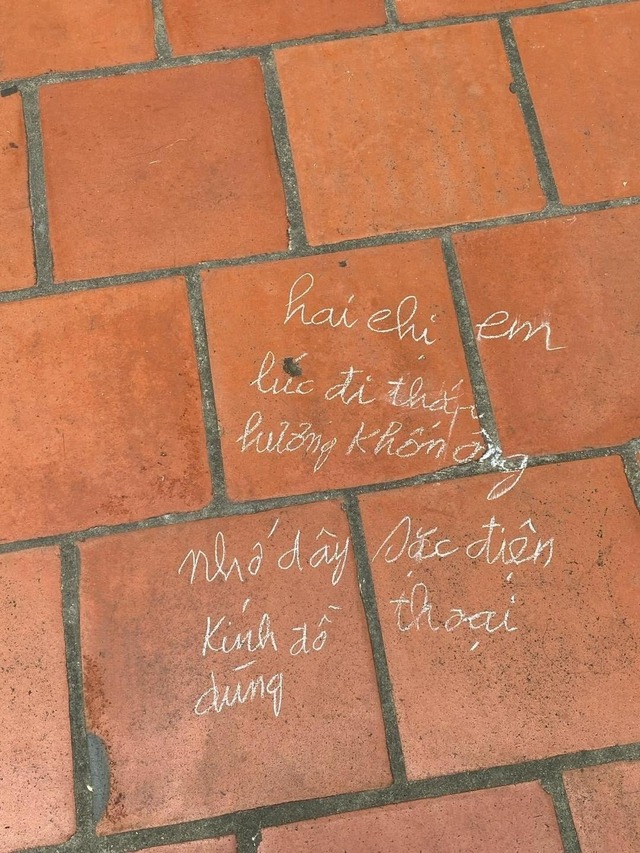 hai chị em
lúc đi thắp
hương không
nhớ dây sạc điện
thoại
Kính đồ
dùng